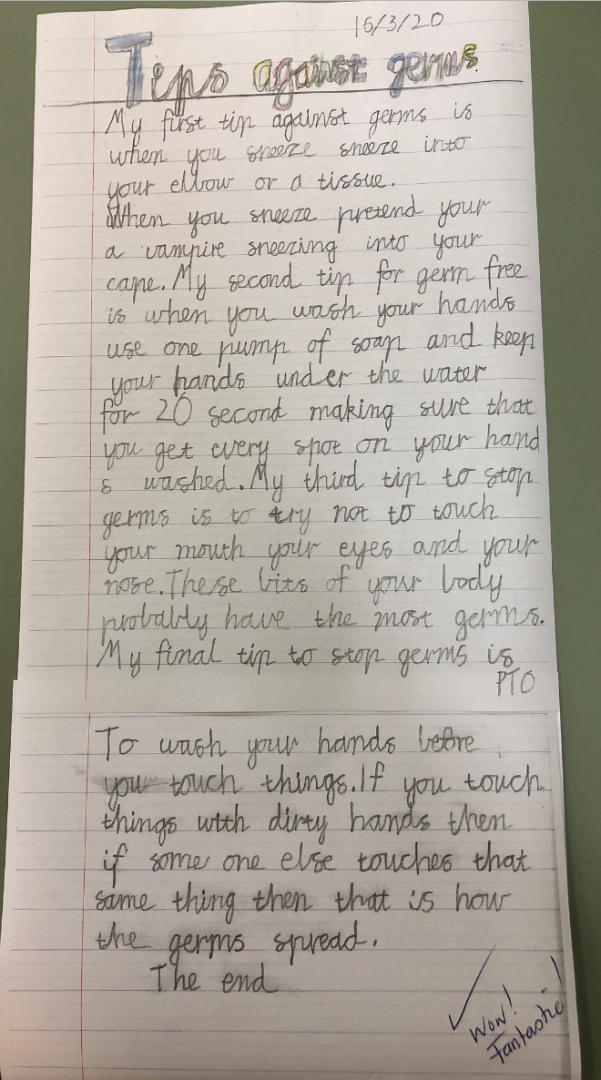 16/3/20
Tips against germs
My first tip against germs is
when you sneeze sneeze into
your elbow or a tissue.
When you sneeze pretend your
a vampire sneezing into your
cape. My second tip for germ free
is when you wash your hands
use one pump of soap and keep
your hands under the water
for 20 second making sure that
you get every spot on your hand
s washed. My third tip to stop
germs is to try not to touch
your mouth your eyes and your
nose. These bits of your body
probably have the most germs.
My final tip to stop germs is
PTO
To wash your hands before
you touch things. If you touch
things with dirty hands then
if some one else touches that
same thing then that is how
the germs spread.
The end
Wow!
Fantastic!